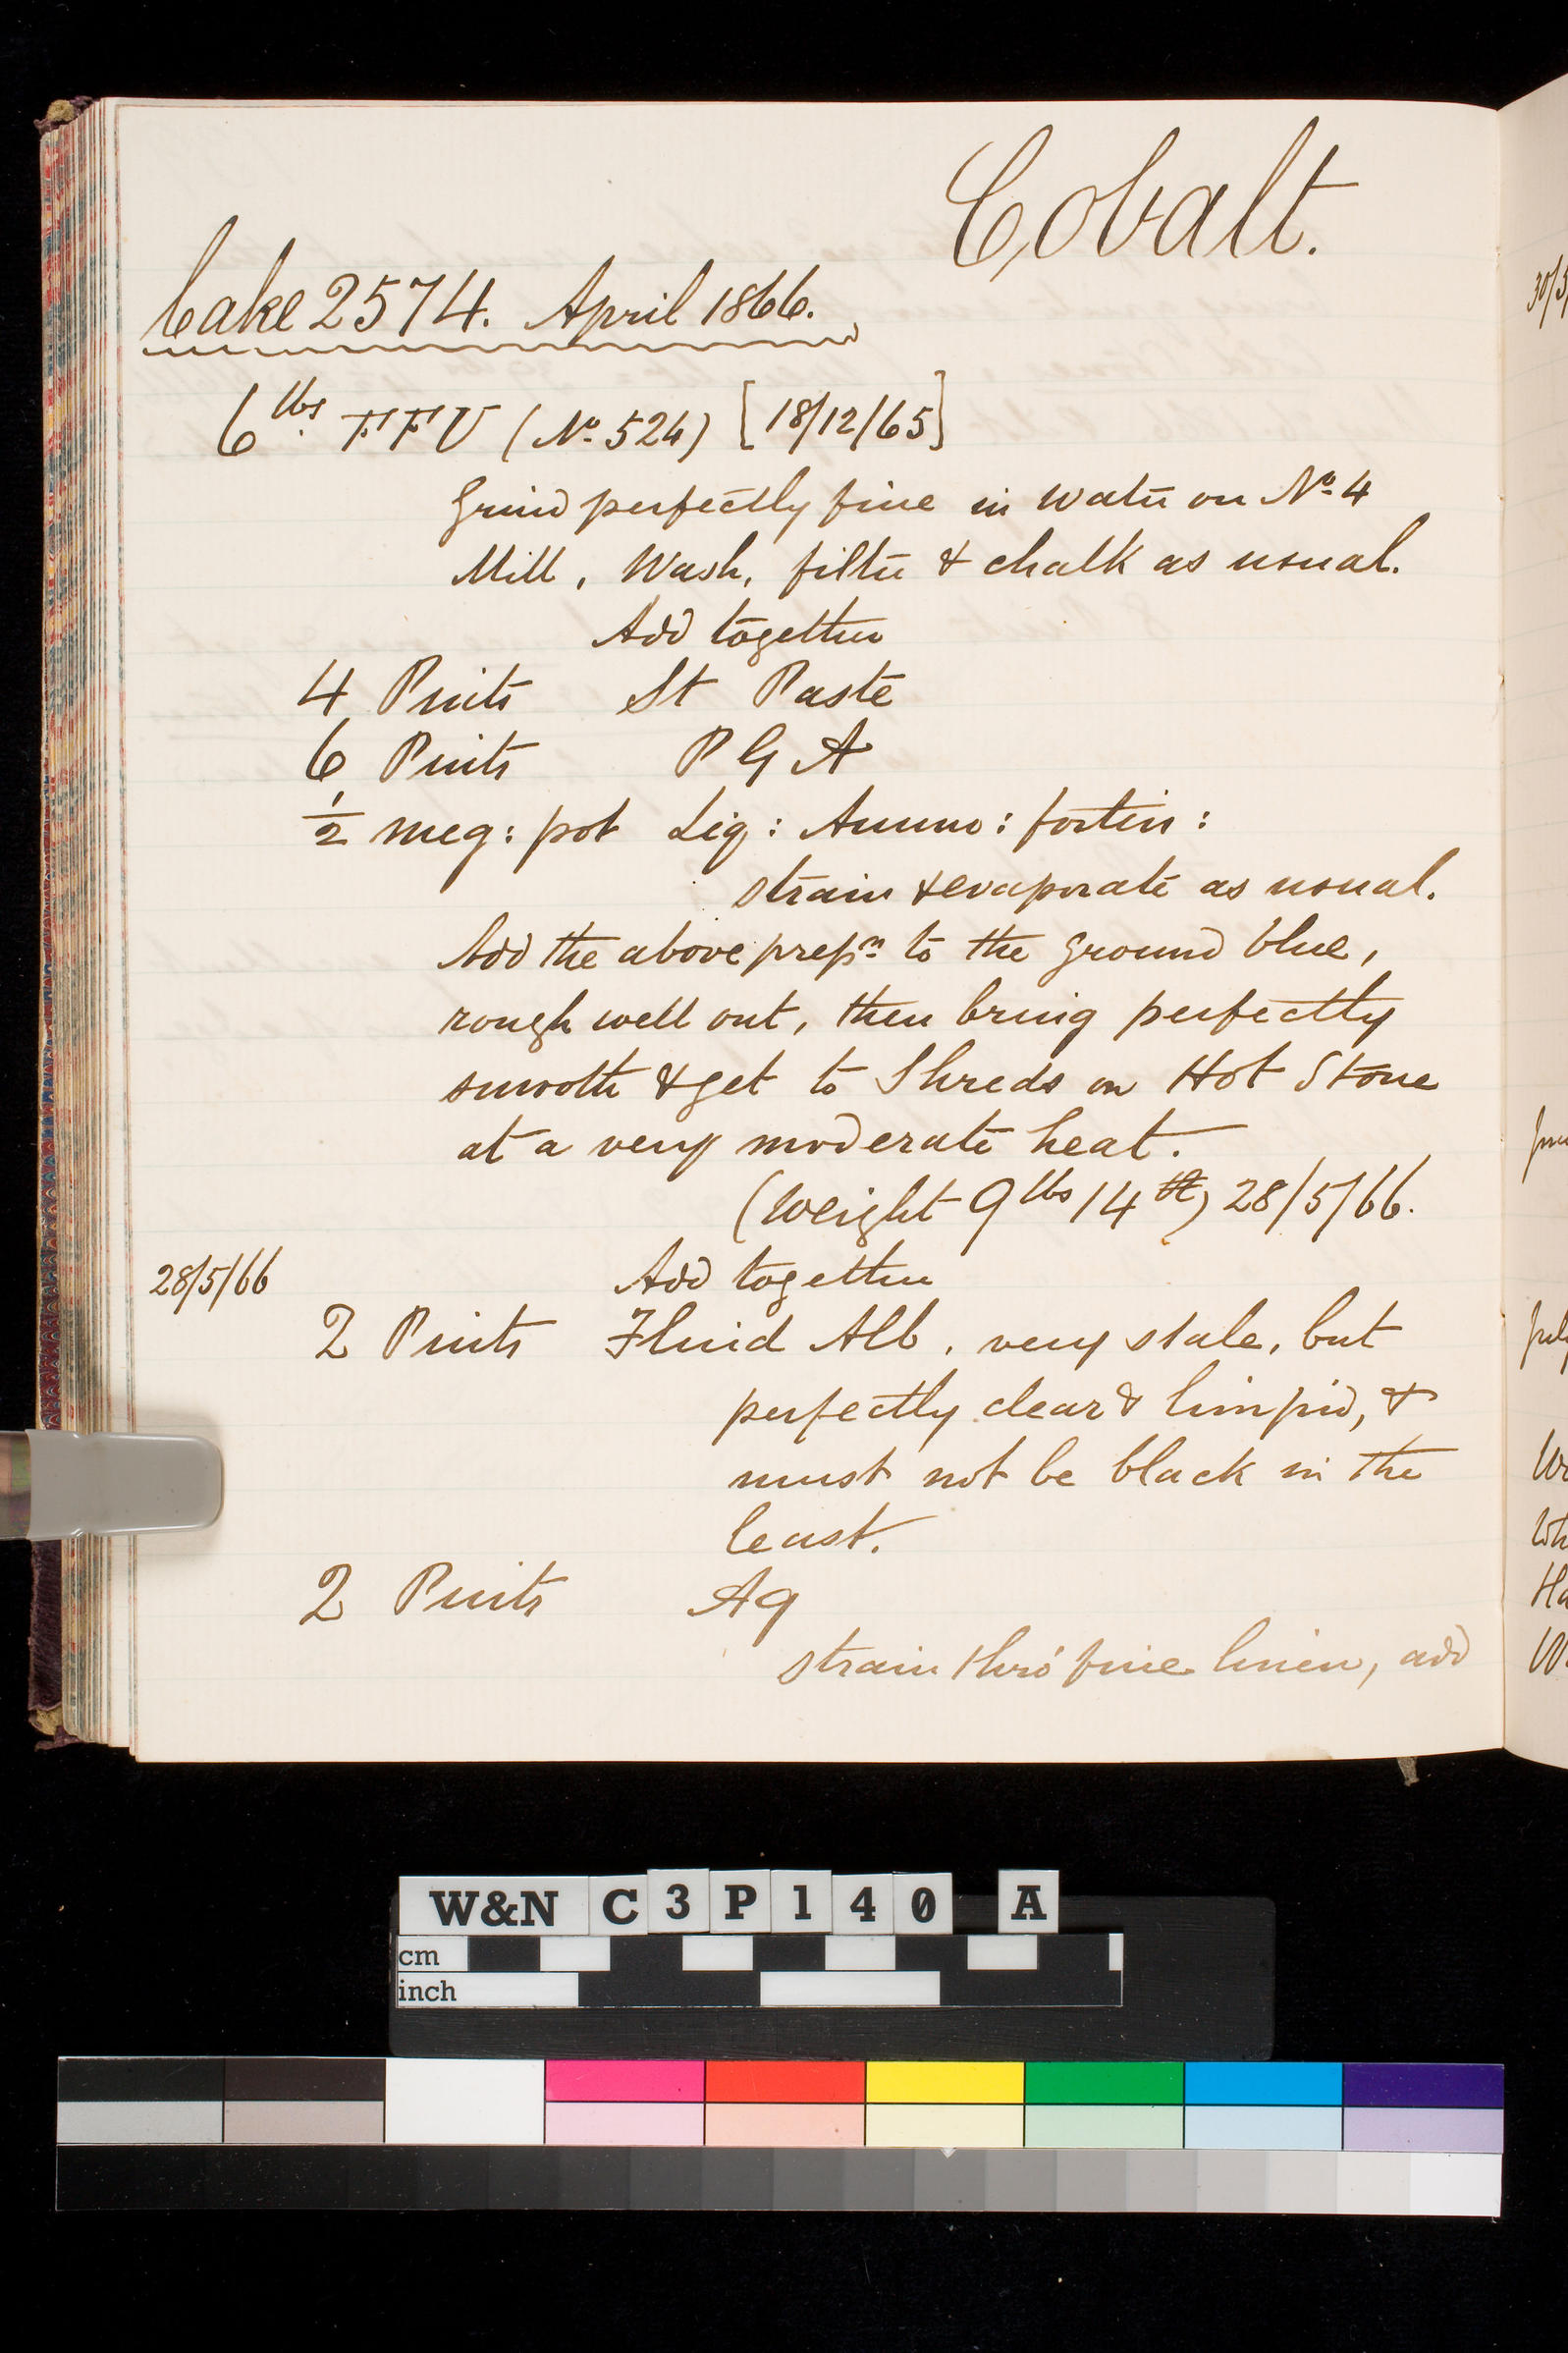 Cobalt.
Cake 2574. April 1866.
6 lbs. FFU (No. 524) [18/12/65]
Grind perfectly fine in water on No. 4
Mill, Wash, filter & chalk as usual.
Add together
4 Pints St Paste
6 Pints P G A
1/2 meg: pot Liq: Ammo: fortis:
strain & evaporate as usual.
Add the above prepn. to the ground blue,
rough well out, then bring perfectly
smooth & get to Shreds on Hot Stone
at a very moderate heat.
(Weight 9 lbs 14 ) 28/5/66.
28/5/66 Add together
2 Pints Fluid Alb, very stale, but
perfectly clear & limpid, &
must not be black in the
least.
2 Pints Aq
strain thro' fine linen, add
W&N C3P140 A
cm
inch